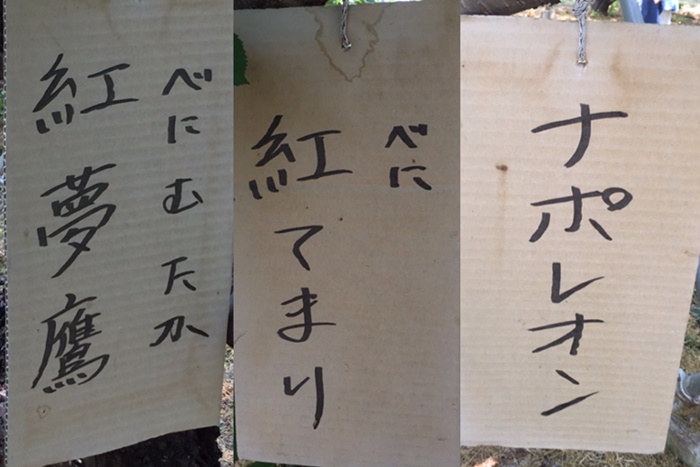 べに むたか
紅夢鷹
べに
紅てまり
ナポレオン